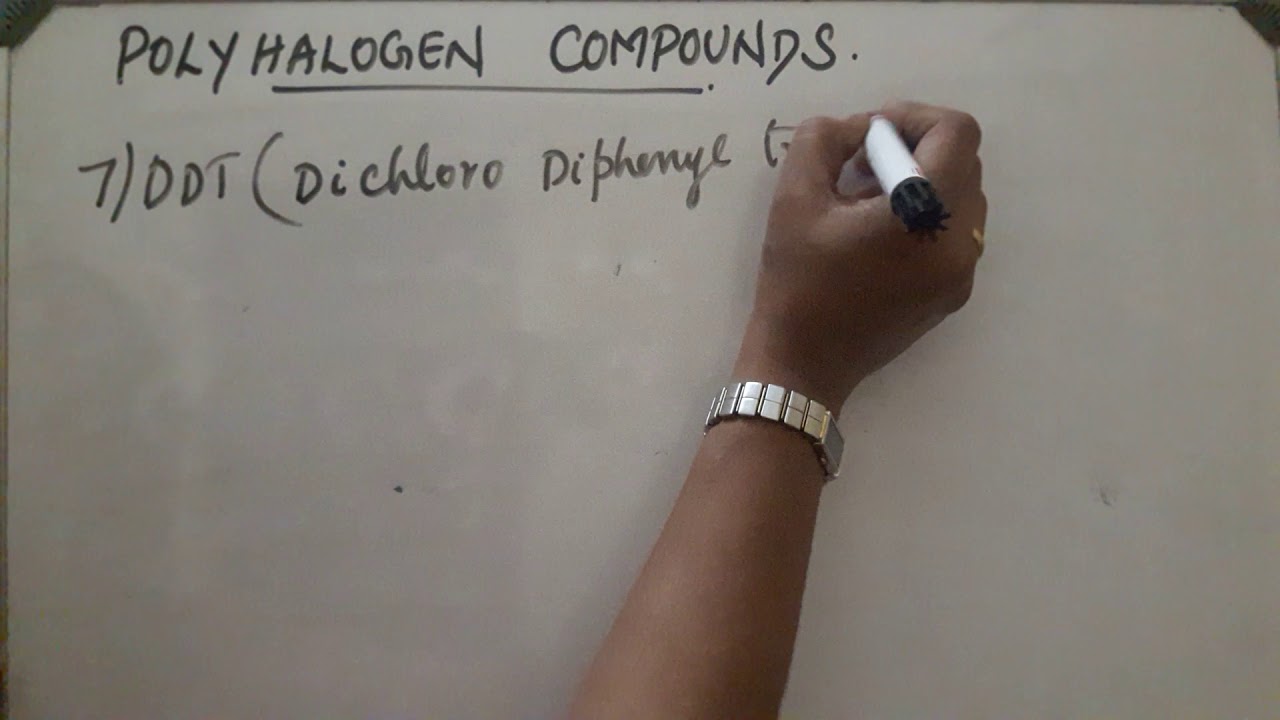 POLYHALOGEN COMPOUNDS.
7) DDT (Dichloro Diphenyl